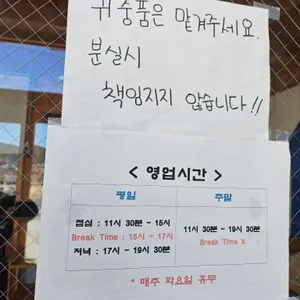 귀중품은 맡겨주세요.
분실시
책임지지 않습니다!!
< 영업시간 >
평일 주말
점심 : 11시 30분 ~ 15시
Break Time : 15시 ~ 17시
저녁 : 17시 ~ 19시 30분
11시 30분 ~ 19시 30분
Break Time X
* 매주 화요일 휴무